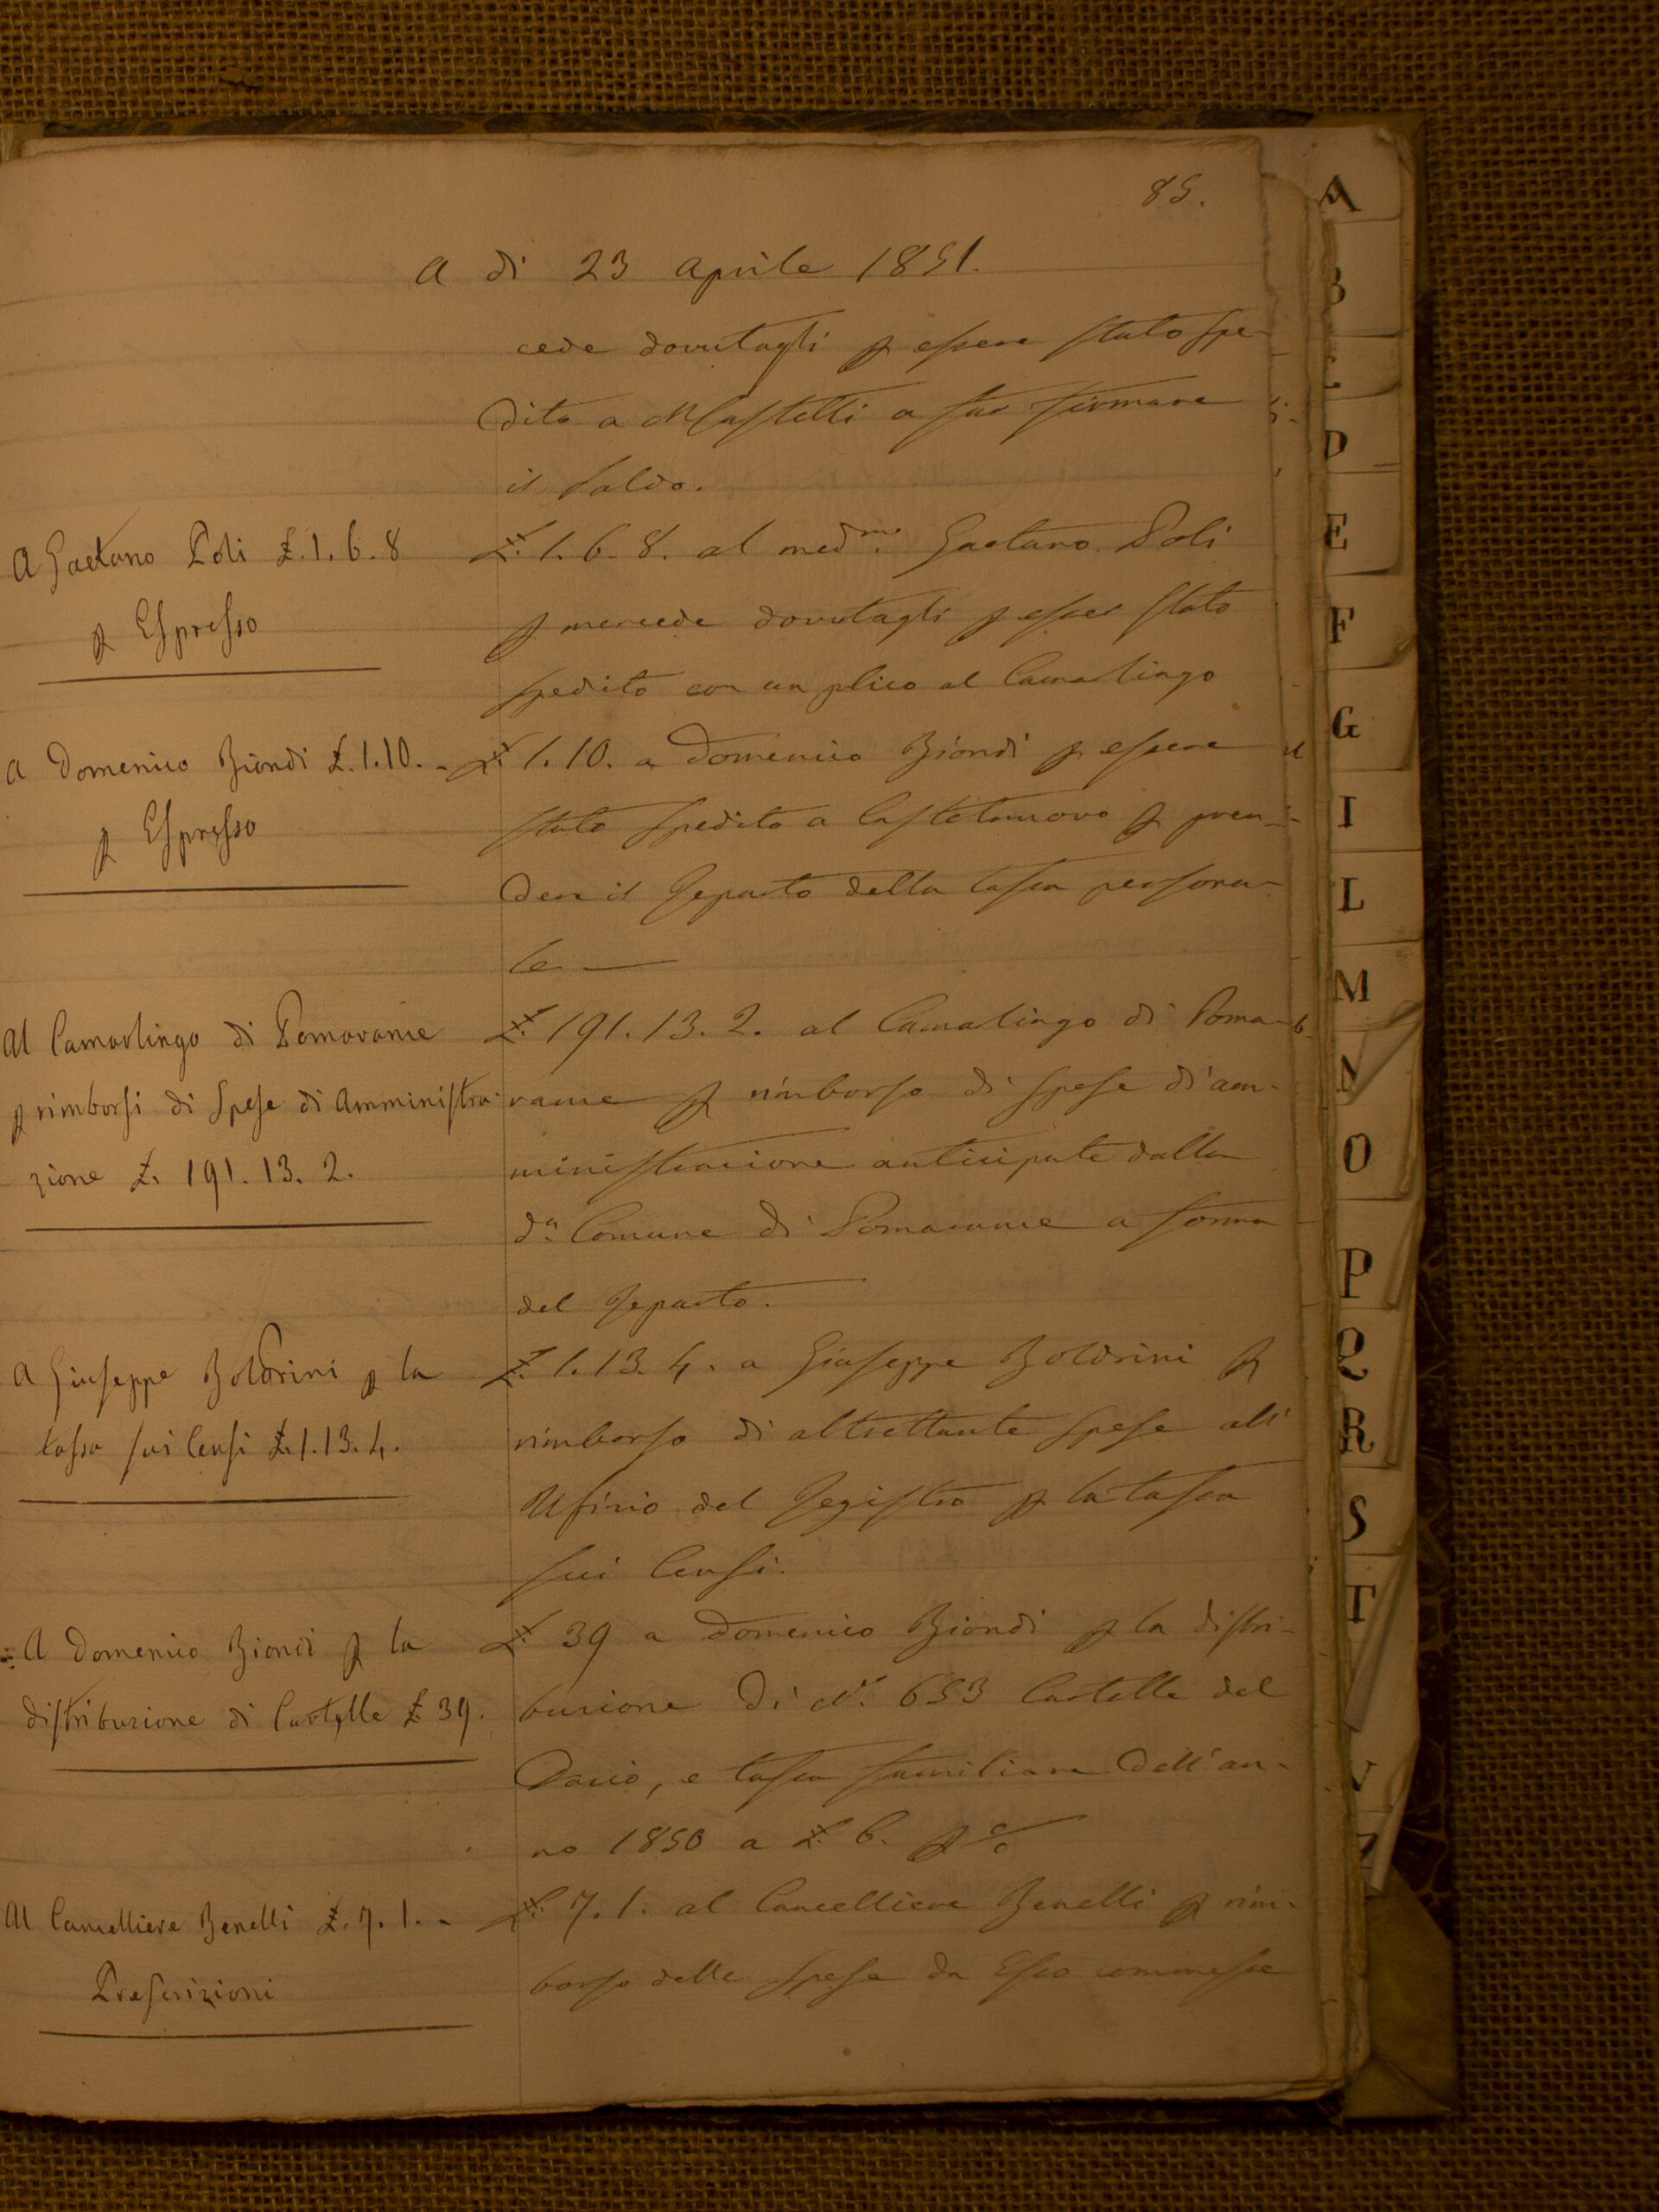 85.
A di 23 Aprile 1851.
cede dovutagli p essere stato spe-
dito a M Castelli a far firmare
il saldo.
A Gaetano Poli £. 1. 6. 8
p Espresso
£. 1. 6. 8. al medmo. Gaetano Poli
p mercede dovutagli p esser stato
spedito con un plico al Camarlingo
A Domenico Biondi £. 1. 10. -
p Espresso
£. 1. 10. a Domenico Biondi p essere
stato spedito a Castelnuovo p pren-
dere il Reparto della tassa persona-
le —
Al Camarlingo di Pomarance
p rimborsi di Spese di Amministra-
zione £. 191. 13. 2.
£. 191. 13. 2. al Camarlingo di Poma-
rance p rimborso di spese di am-
ministrazione anticipate dalla
da. Comune di Pomarance a forma
del Reparto.
A Giuseppe Boldrini p la
tassa sui Censi £. 1. 13. 4.
£. 1. 13. 4. a Giuseppe Boldrini p
rimborso di altrettante spese all'
Ufizio del Registro p la tassa
sui Censi.
A Domenico Biondi p la
distribuzione di Cartelle £ 39.
£ 39 a Domenico Biondi p la distri-
buzione di No. 653 Cartelle del
Dazio, e tassa familiare dell'an-
no 1850 a £ 6. p c/o
Al Cancelliere Benelli £. 7. 1. -
Prescrizioni
£. 7. 1. al Cancelliere Benelli p rim-
borso delle spese da Esso commesse
A
B
C
D
E
F
G
I
L
M
N
O
P
Q
R
S
T
V
Z